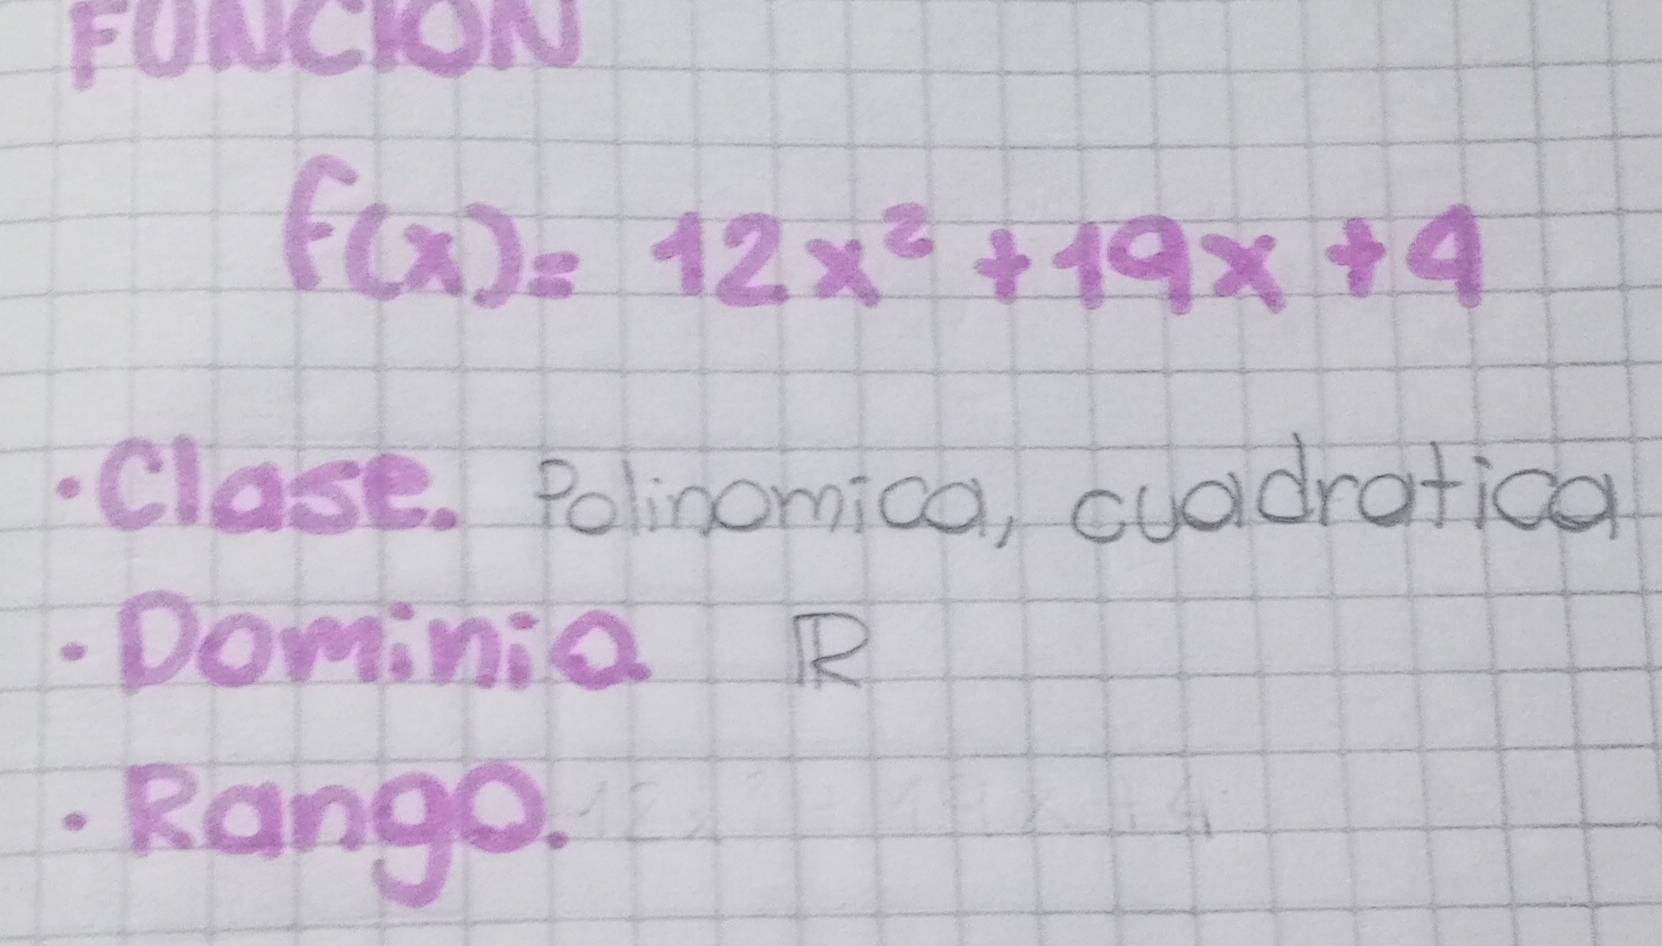 FUNCION
f(x)= 12x² + 19x + 4
· Clase. Polinomica, cuadratica
· Dominio ℝ
· Rango.